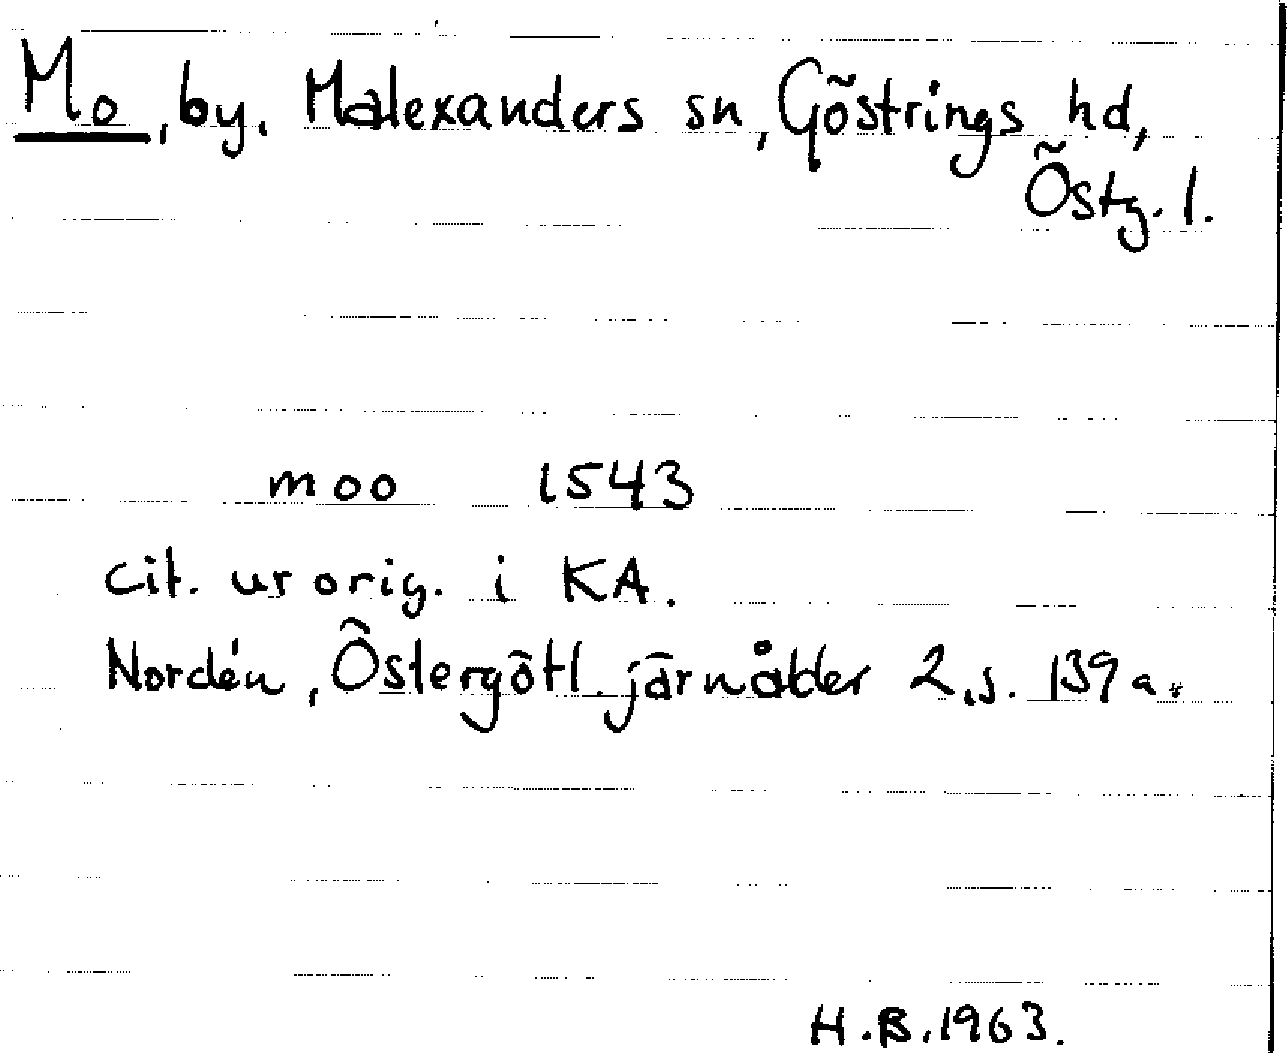 Mo, by. Malexanders sn, Göstrings hd,
Östg. l.
moo 1543
cit. ur orig. i KA.
Nordén, Östergötl. järnålder 2, s. 139 a.
H.B. 1963.